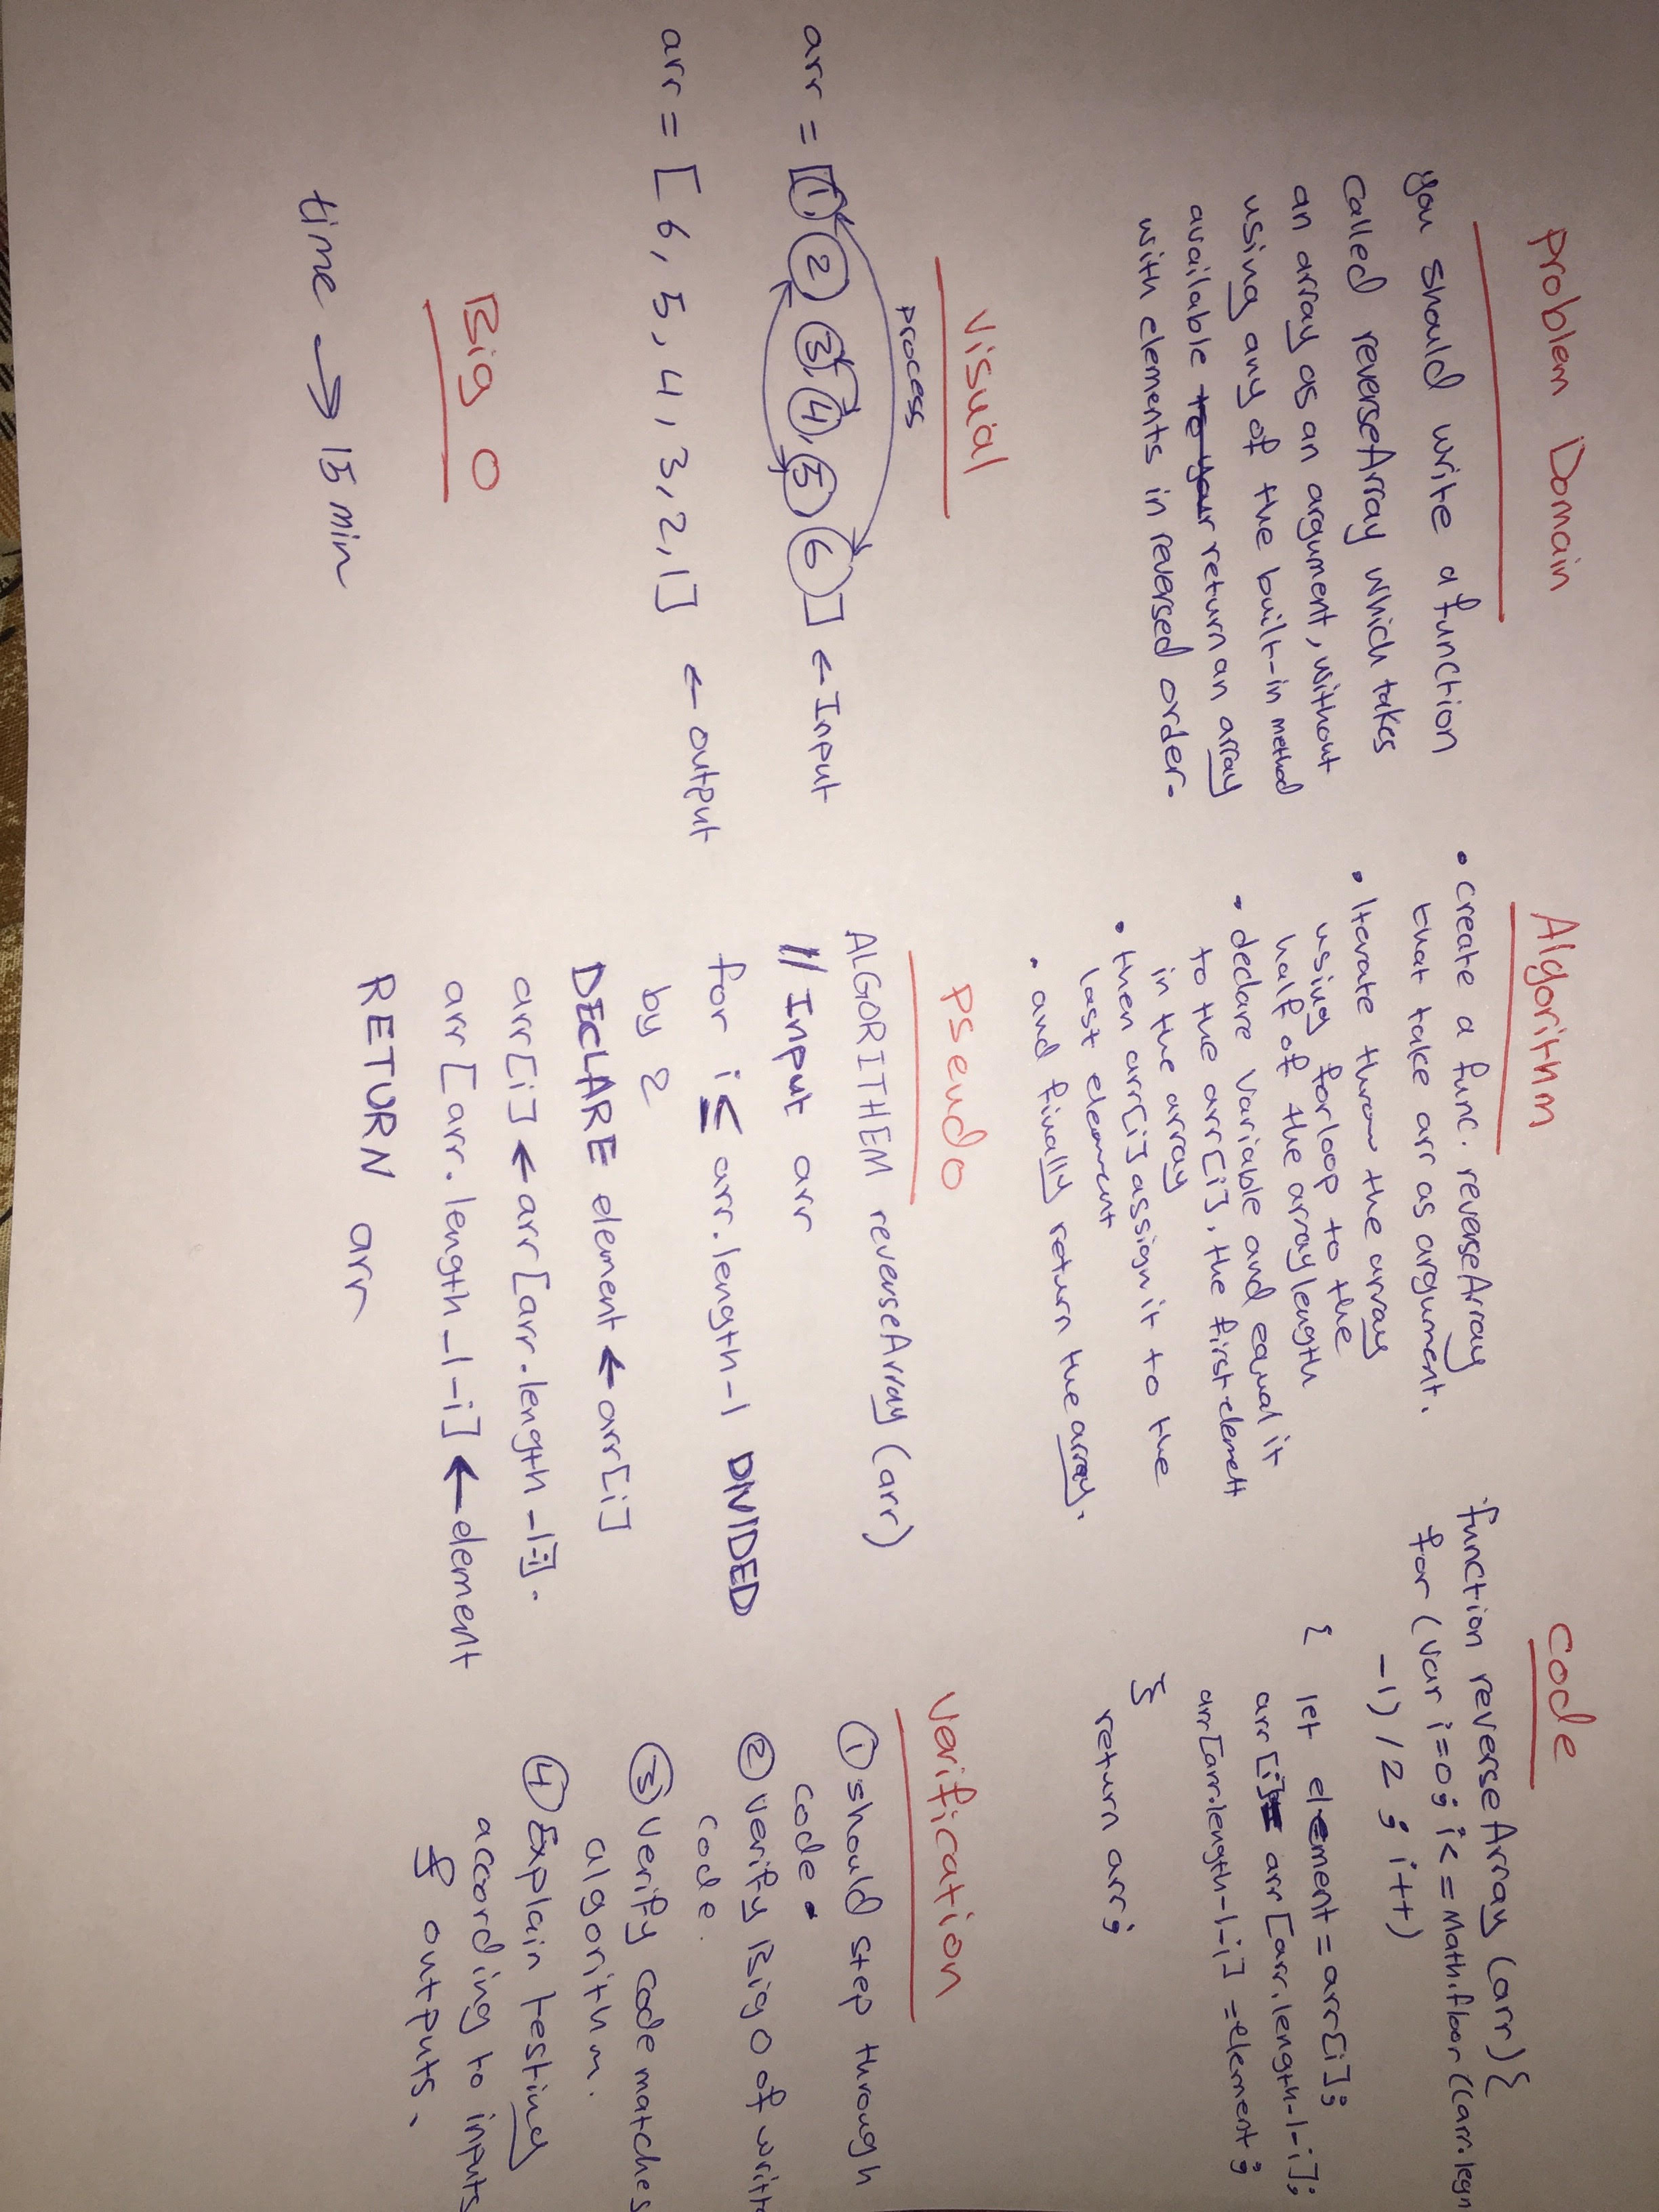 Problem Domain
you should write a function
called reverseArray which takes
an array as an argument, without
using any of the built-in method
available to your return an array
with elements in reversed order.
Visual
process
arr = [1, 2, 3, 4, 5, 6] ← Input
arr = [6, 5, 4, 3, 2, 1] ← output
Big O
time → 15 min
Algorithm
• create a func. reverseArray
that take arr as argument.
• Iterate throw the array
using forloop to the
half of the array length
• declare variable and equal it
to the arr[i], the first elemett
in the array
• then arr[i] assign it to the
last element
• and finally return the array.
Pseudo
ALGORITHEM reverseArray (arr)
// Input arr
for i ≤ arr.length-1 DIVIDED
by 2
DECLARE element ← arr[i]
arr[i] ← arr[arr.length-1-i].
arr[arr.length-1-i] ← element
RETURN arr
Code
function reverseArray (arr){
for (var i=0; i<=Math.floor((arr.legn
-1)/2; i++)
{ let element = arr[i];
arr[i]= arr[arr.length-1-i];
arr[arr.length-1-i] = element;
}
return arr;
Verification
① should step through
code.
② verify Big O of writt
code.
③ verify code matches
algorithm.
④ Explain testing
according to inputs
& outputs.